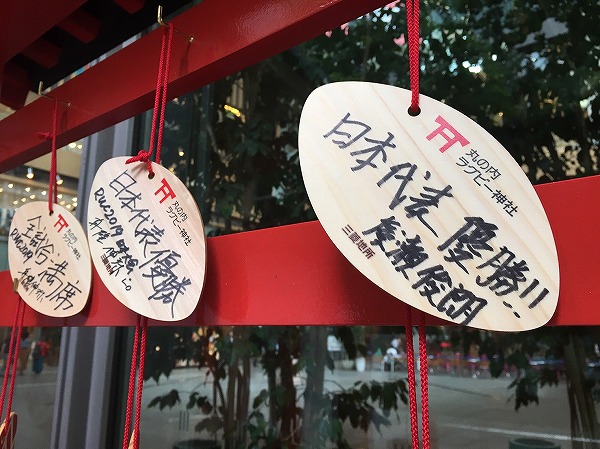 丸の内
ラグビー神社
日本代表優勝!!
廣瀬俊朗
三菱地所
丸の内
ラグビー神社
日本代表優勝
RWC2019
三菱地所
全試合満席
RWC2019